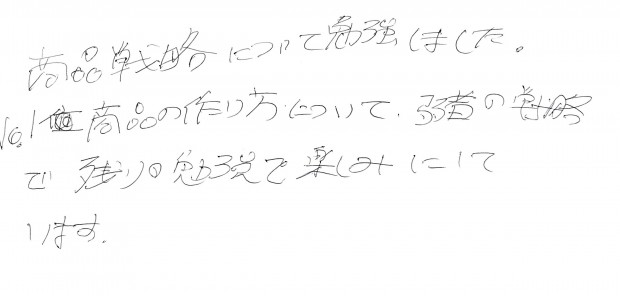 商品戦略について勉強しました。
No.1位商品の作り方について、弱者の戦略
で残りの勉強で楽しみにして
います。